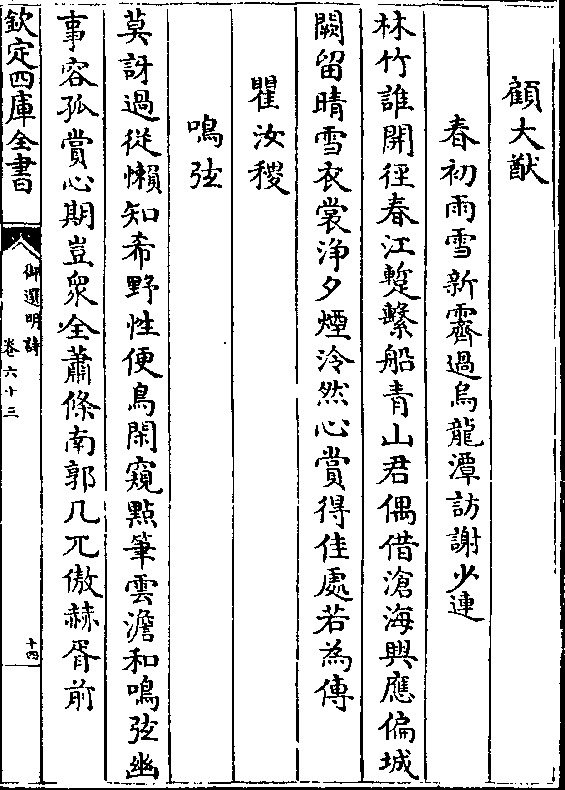 顧大猷
春初雨雪新霽過烏龍潭訪謝少連
林竹誰開徑春江蹔繫船青山君偶借滄海興應偏城
闕留晴雪衣裳浄夕煙泠然心賞得佳處若為傳
瞿汝稷
鳴弦
莫訝過從懶知希野性便鳥閑窺點筆雲澹和鳴弦幽
事容孤賞心期豈衆全蕭條南郭几兀傲赫胥前
欽定四庫全書
御選明詩
卷六十三
十四